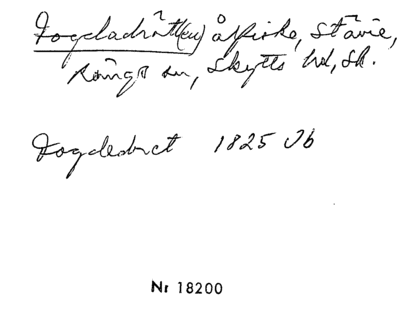 Fogdadrätt(en) ålfiske, Stävie,
Kävl sn, Skytts hd, Sk.
Fogdedræt 1825 Jb
Nr 18200